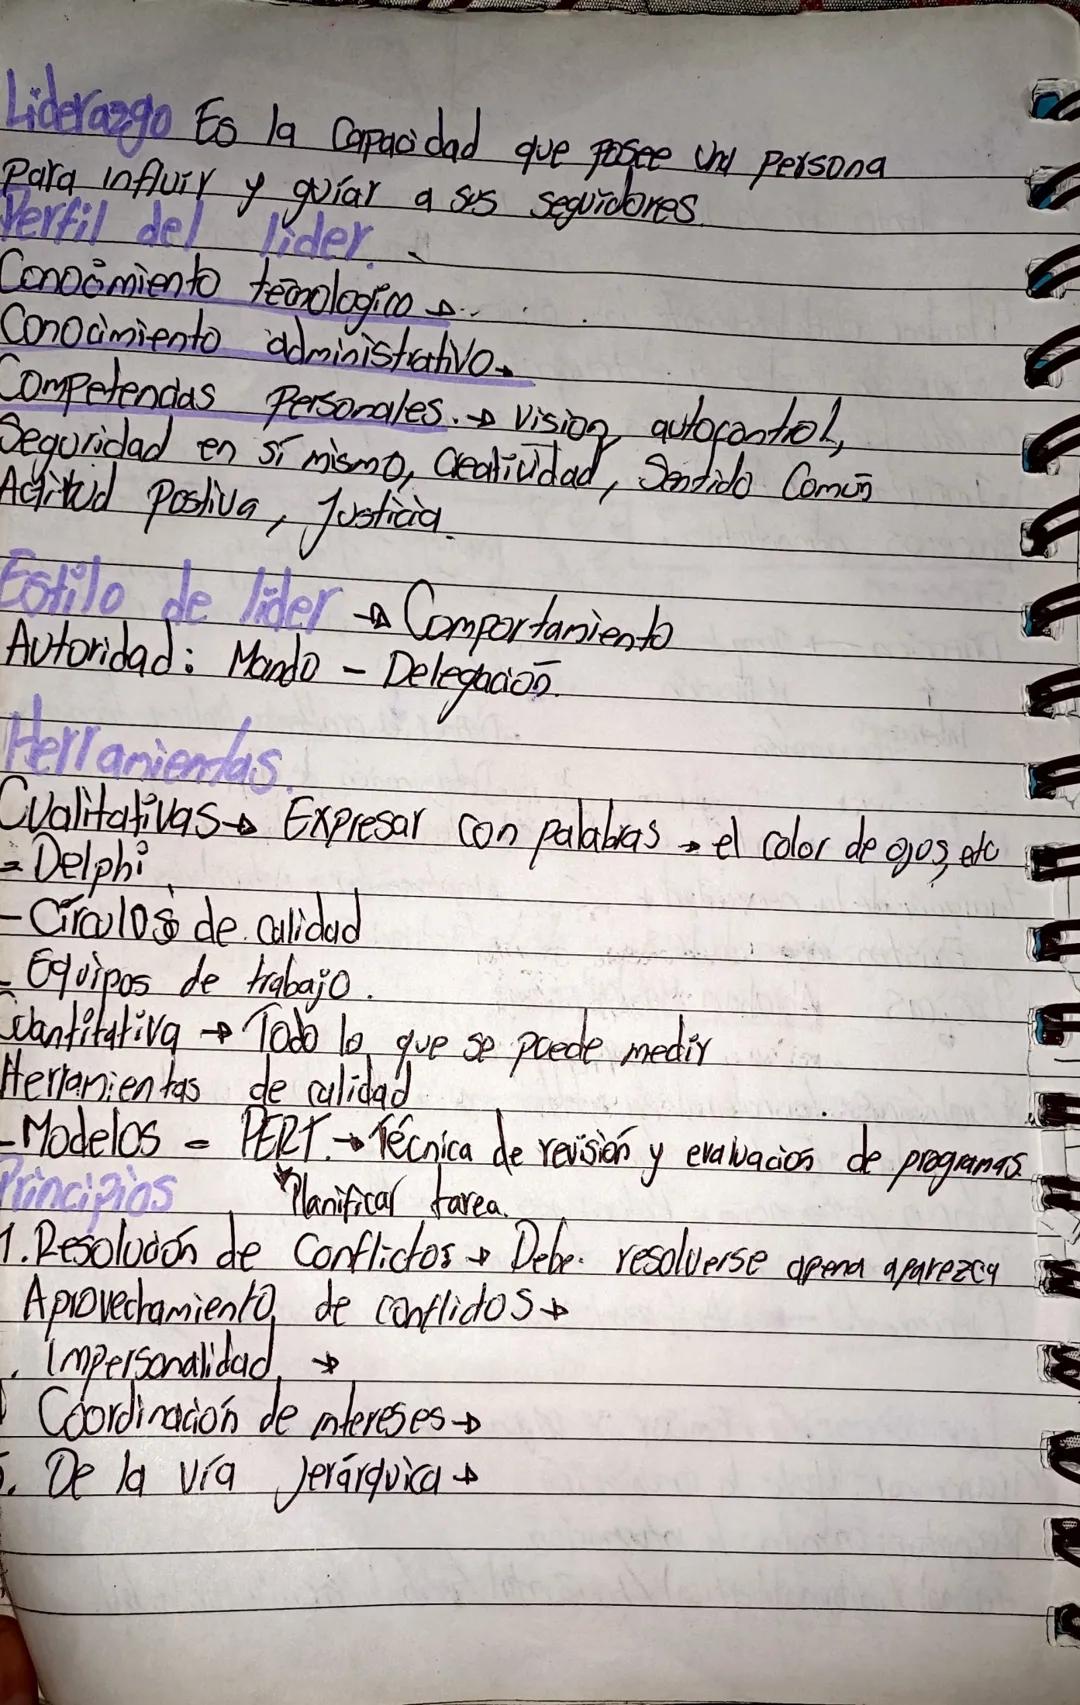 Liderazgo Es la Capacidad que posee una persona
para influir y guiar a sus seguidores.
Perfil del lider.
Conocimiento tecnologico →..
Conocimiento administrativo→
Competencias Personales. → Vision, autocontrol,
Seguridad en sí mismo, Creatividad, Sentido Común
Actitud Postiva, Justicia.
Estilo de lider → Comportamiento
Autoridad: Mando - Delegación.
Herramientas.
Cualitativas → Expresar con palabras → el color de ojos, etc
- Delphi
- Círculos de calidad
- Equipos de trabajo.
Cuantitativa → Todo lo que se puede medir
Herramientas de calidad
- Modelos - PERT. → Técnica de revisión y evaluación de programas.
Principios Planificar tarea.
1. Resolución de Conflictos → Debe. resolverse apena aparezca
Aprovechamiento de conflictos →
. Impersonalidad →
Coordinación de intereses →
5. De la vía Jerárquica →